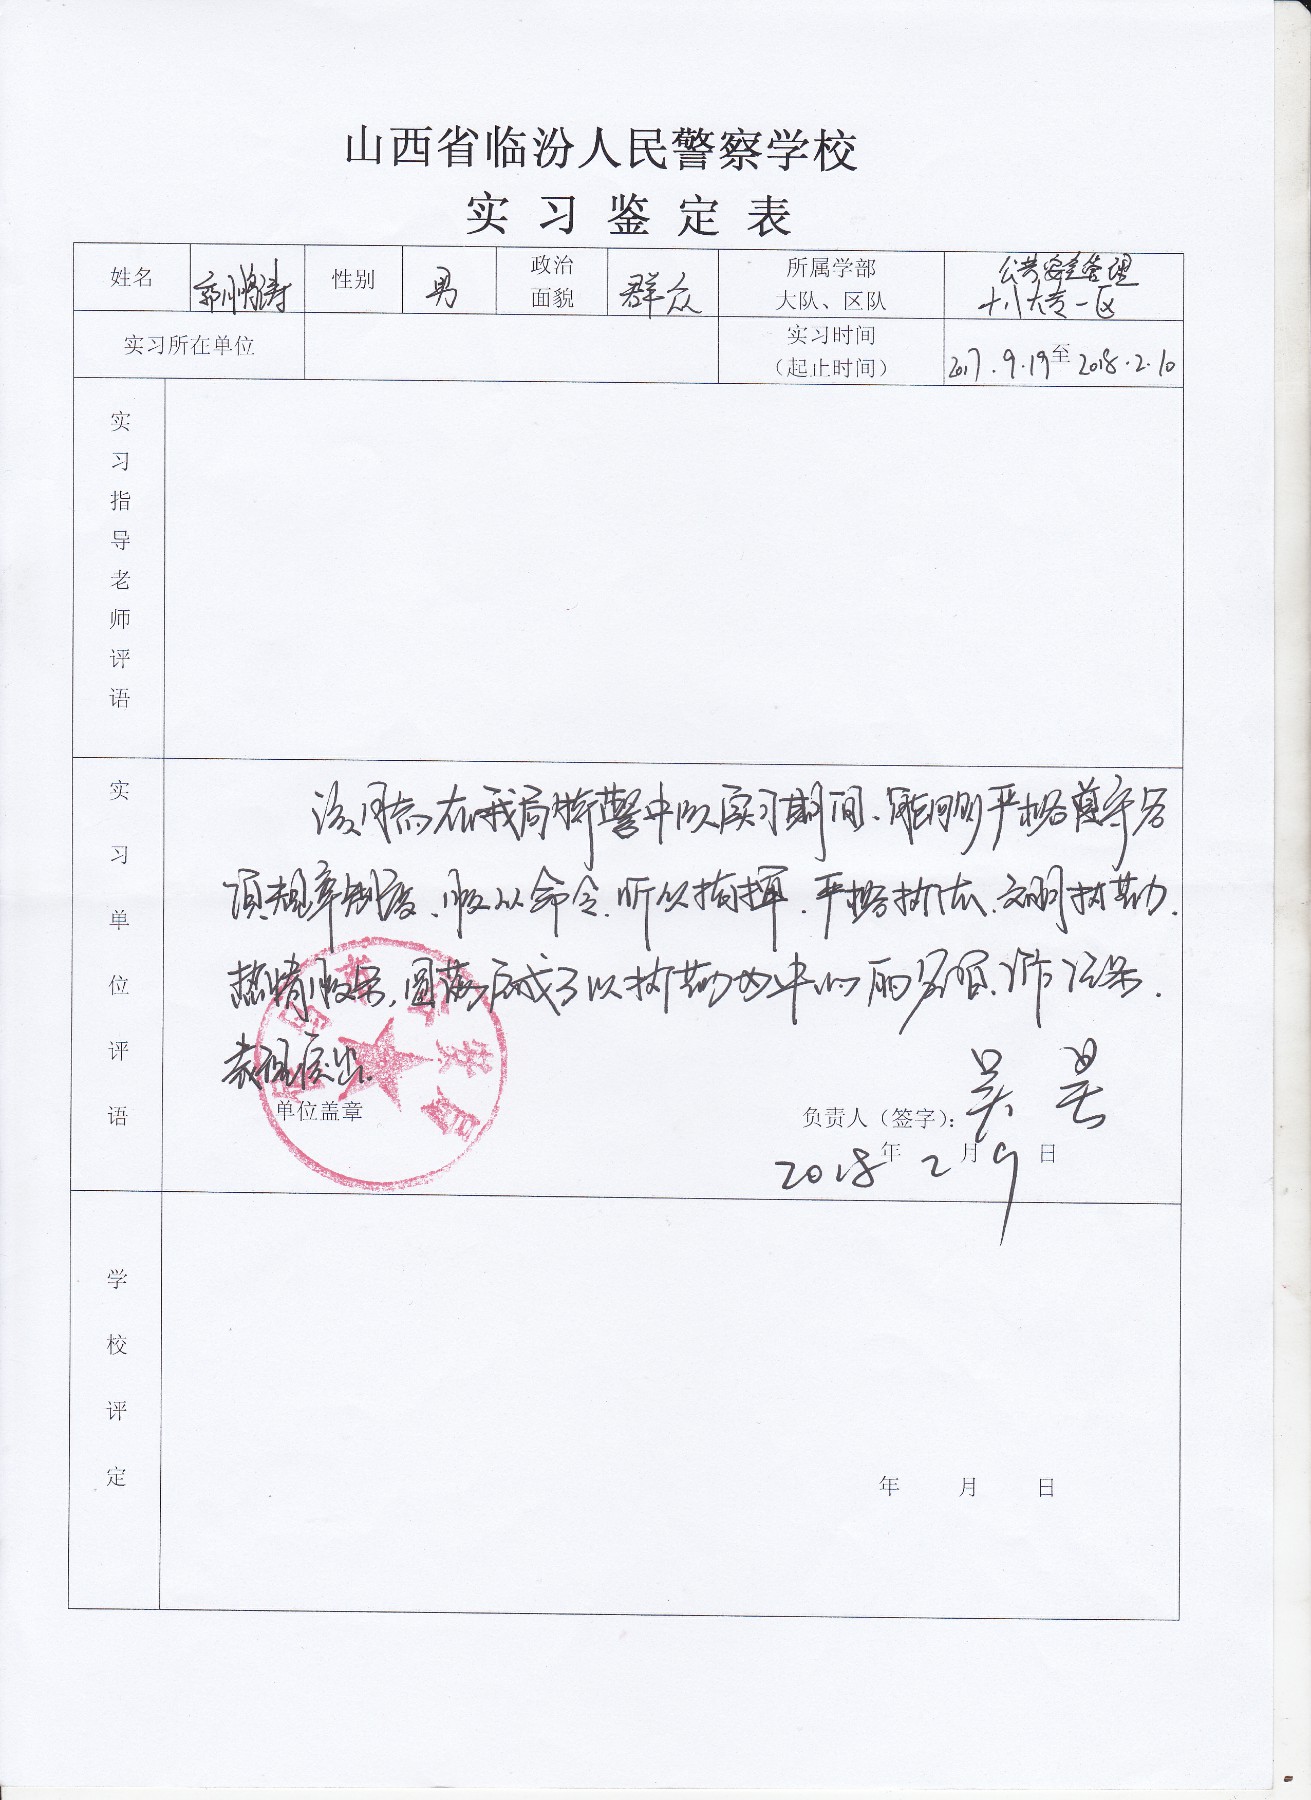 山西省临汾人民警察学校
实习鉴定表
姓名 性别 男 政治面貌 群众 所属学部大队、区队 公共安全管理十八大专一区
实习所在单位 实习时间（起止时间） 2017.9.19至2018.2.10
实习指导老师评语
实习单位评语
该同志在我局特警中队实习期间、能够严格遵守各
项规章制度、服从命令、听从指挥、严格执法、文明执勤、
热情服务，圆满完成了以执勤为中心的各项工作任务，
表现突出.
单位盖章
负责人（签字）：吴昊
2018年2月9日
学校评定
年 月 日